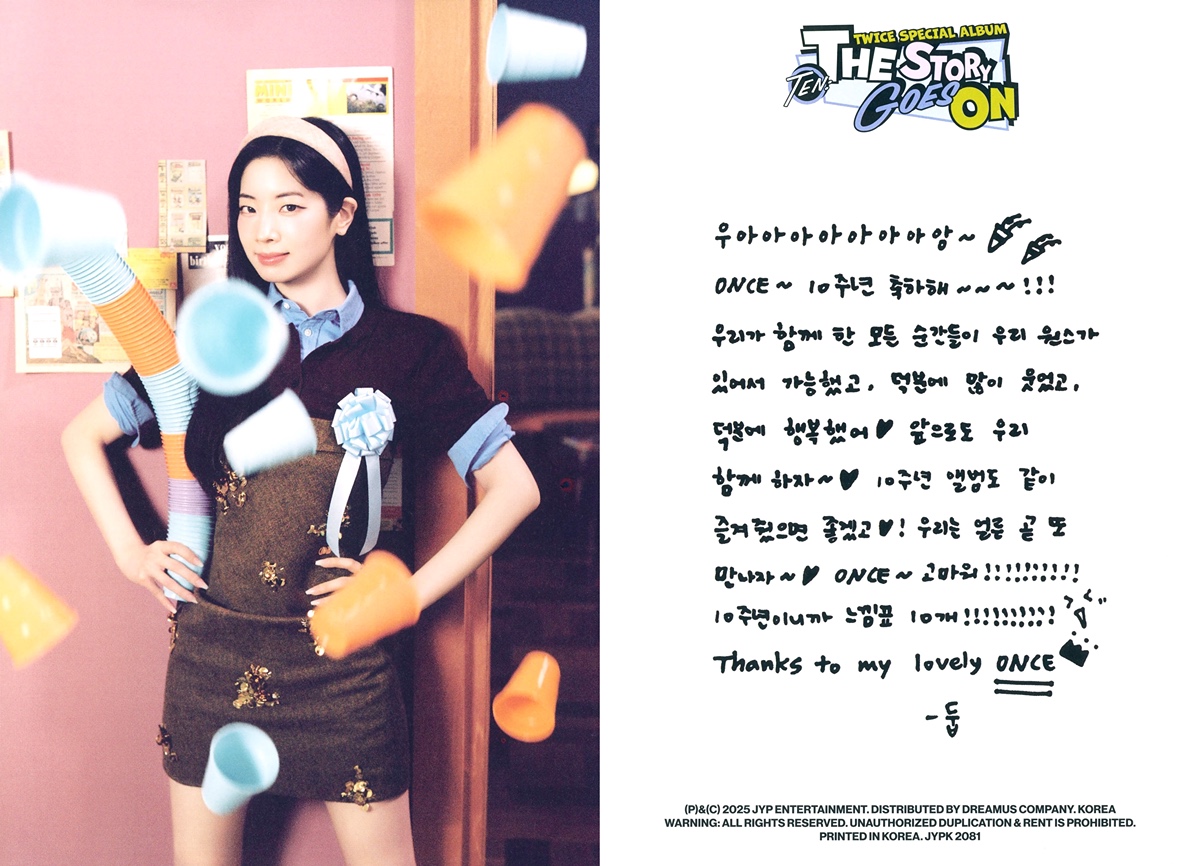 MINI
WORLD
TWICE SPECIAL ALBUM
TEN:
THE STORY
GOES ON
우아아아아아아아앙~
ONCE~ 10주년 축하해~~~!!!
우리가 함께 한 모든 순간들이 우리 원스가
있어서 가능했고, 덕분에 많이 웃었고,
덕분에 행복했어♥ 앞으로도 우리
함께 하자~♥ 10주년 앨범도 같이
즐겨줬으면 좋겠고♥! 우리는 얼른 곧 또
만나자~♥ ONCE~ 고마워!!!!!!!!!!
10주년이니까 느낌표 10개!!!!!!!!!!
Thanks to my lovely ONCE
-둡
(P)&(C) 2025 JYP ENTERTAINMENT. DISTRIBUTED BY DREAMUS COMPANY. KOREA
WARNING: ALL RIGHTS RESERVED. UNAUTHORIZED DUPLICATION & RENT IS PROHIBITED.
PRINTED IN KOREA. JYPK 2081